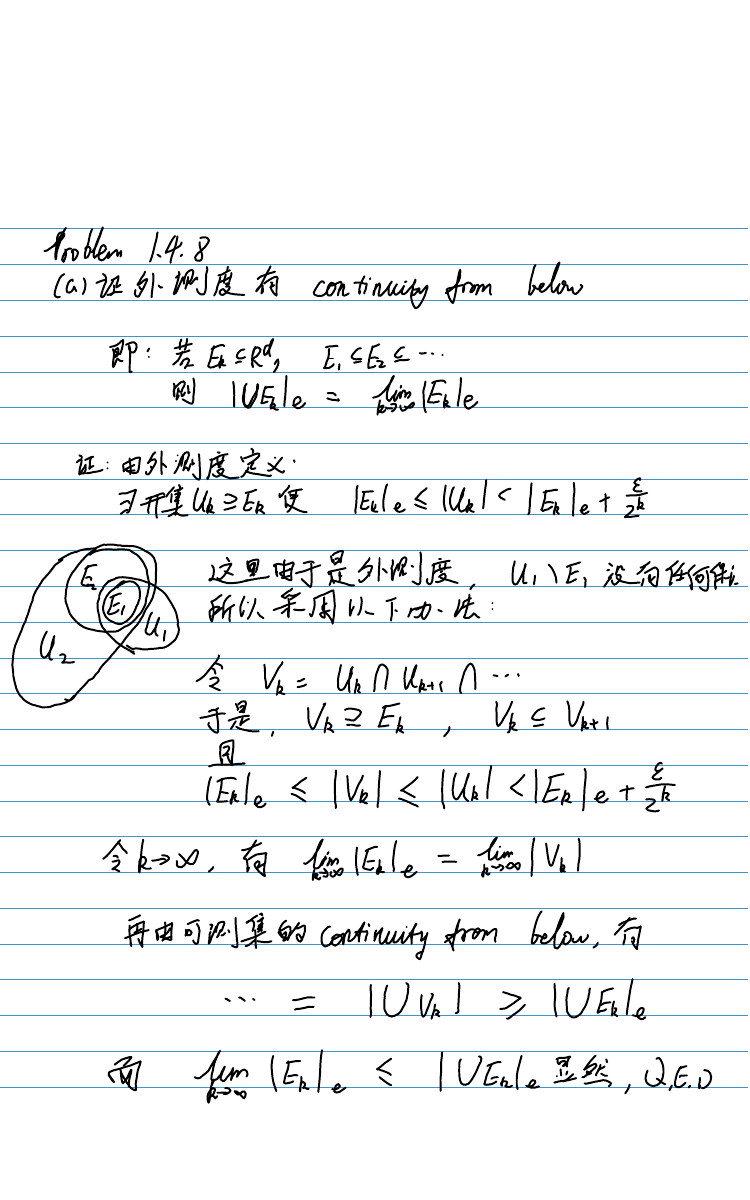 Problem 1.4.8
(a) 证外测度有 continuity from below
即: 若 E_k ⊆ R^d, E_1 ⊆ E_2 ⊆ ⋯
则 |∪E_k|_e = lim_{k→∞} |E_k|_e
证: 由外测度定义.
∃开集 U_k ⊇ E_k 使 |E_k|_e ≤ |U_k| < |E_k|_e + ε/2^k
这里由于是外测度, U_1 \ E_1 没有任何保证
所以采用以下办法:
E_2 E_1 U_1 U_2
令 V_k = U_k ∩ U_{k+1} ∩ ⋯
于是, V_k ⊇ E_k , V_k ⊆ V_{k+1}
且
|E_k|_e ≤ |V_k| ≤ |U_k| < |E_k|_e + ε/2^k
令 k→∞, 有 lim_{k→∞} |E_k|_e = lim_{k→∞} |V_k|
再由可测集的 continuity from below, 有
⋯ = |∪V_k| ≥ |∪E_k|_e
而 lim_{k→∞} |E_k|_e ≤ |∪E_k|_e 显然, Q.E.D